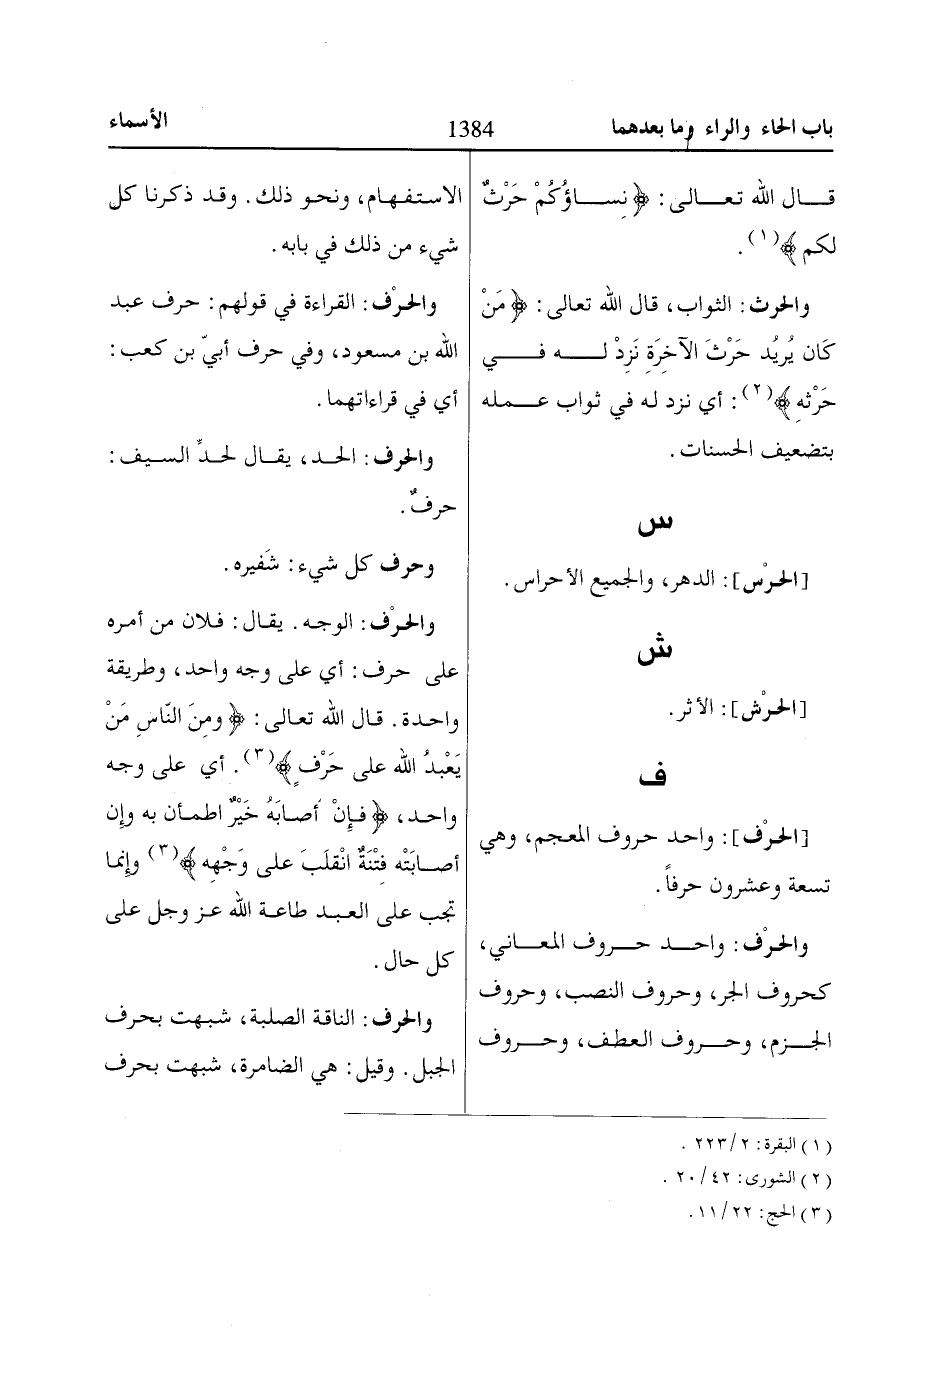 باب الحاء والراء وما بعدهما
1384
الأسماء
قال الله تعالى: ﴿نِساؤُكُمْ حَرْثٌ
لكم﴾(١).
والحرث: الثواب، قال الله تعالى: ﴿مَنْ
كَان يُرِيُد حَرْثَ الآخرَةِ نَزِدْ له في
حَرْثِه﴾(٢): أي نزد له في ثواب عمله
بتضعيف الحسنات.
س
[الحرْس]: الدهر، والجميع الأحراس.
ش
[الحرْش]: الأثر.
ف
[الحرْف]: واحد حروف المعجم، وهي
تسعة وعشرون حرفاً.
والحرْف: واحد حروف المعاني،
كحروف الجر، وحروف النصب، وحروف
الجزم، وحروف العطف، وحروف
الاستفهام، ونحو ذلك. وقد ذكرنا كل
شيء من ذلك في بابه.
والحرْف: القراءة في قولهم: حرف عبد
الله بن مسعود، وفي حرف أبيّ بن كعب:
أي في قراءاتهما.
والحرف: الحد، يقال لحدِّ السيف:
حرفٌ.
وحرف كل شيء: شَفيره.
والحرْف: الوجه. يقال: فلان من أمره
على حرف: أي على وجه واحد، وطريقة
واحدة. قال الله تعالى: ﴿ومِنَ النّاسِ مَنْ
يَعْبدُ الله على حَرْفٍ﴾(٣). أي على وجه
واحد، ﴿فإنْ أصابَهُ خَيْرٌ اطمأن به وإن
أصابَتْه فتْنَةٌ انْقلَبَ على وَجْهِه﴾(٣) وإنما
تجب على العبد طاعة الله عز وجل على
كل حال.
والحرف: الناقة الصلبة، شبهت بحرف
الجبل. وقيل: هي الضامرة، شبهت بحرف
(١) البقرة: ٢/ ٢٢٣.
(٢) الشورى: ٤٢/ ٢٠.
(٣) الحج: ٢٢/ ١١.